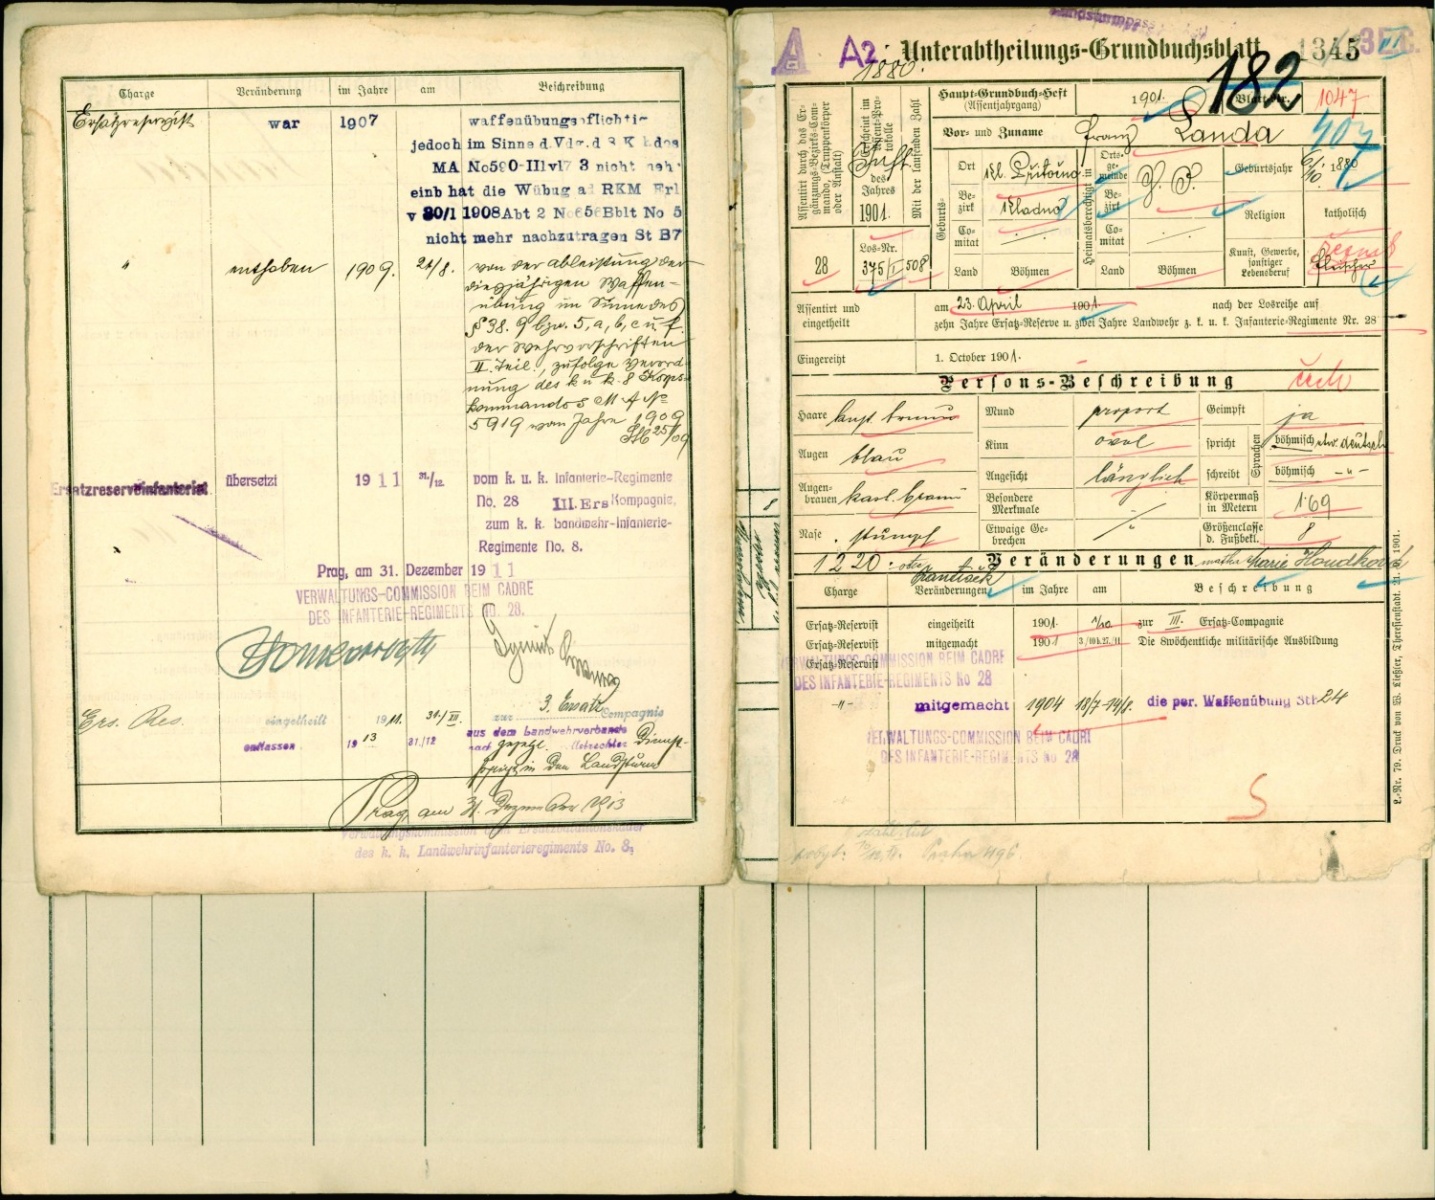 Charge Veränderung im Jahre am Beschreibung
Ersatzreservist war 1907 waffenübungspflichtig
jedoch im Sinne d. Vdg. d 8 K kdos
MA No 590-III v 17 3 nicht
einb hat die Wübug RKM Erl
v 30/1 1908 Abt 2 No 656 Bblt No 5
nicht mehr nachzutragen St B7
" enthoben 1909. 21/8. von der Ableistung der
diesjährigen Waffen-
übung im Sinne des
§ 38. 9 bzw. 5, a, b, c u f.
der Wehrvorschriften
II. Teil, zufolge Verord-
nung des k u k. 8 Korps-
kommandos M A No
5919 vom Jahre 1909
25/ 09
Ersatzreserveinfanterist übersetzt 1911 31./12. vom k. u. k. Infanterie-Regimente
No. 28 III. Ers Kompagnie,
zum k. k. Landwehr-Infanterie-
Regimente No. 8.
Prag, am 31. Dezember 1911
VERWALTUNGS-COMMISSION BEIM CADRE
DES INFANTERIE-REGIMENTS NO. 28.
Ers. Res. eingeteilt 1911. 31./XII. zur 3. Ersatz Compagnie
entlassen 1913 31/12 aus dem Landwehrverbande
nach gesetzl. vollstreckter Dienst-
pflicht in den Landsturm
Prag, am 31. Dezember 1913
Verwaltungskommission beim Ersatzbataillonskader
des k. k. Landwehrinfanterieregiments No. 8,
A A2. Unterabtheilungs-Grundbuchsblatt 1345
1880.
182
Assentirt durch das Ergänzungs-Bezirks-Commando (Truppenkörper oder Anstalt)
Erscheint im Assent-Protokolle
des Jahres 1901.
Mit der laufenden Zahl
28
Los-Nr.
375/I 508
Haupt-Grundbuch-Heft
(Assentjahrgang) 1901. Blatt-Nr. 1047
407
Vor- und Zuname Franz Landa
Geburts-
Ort Kl. Přítočno
Bezirk Kladno
Comitat
Land Böhmen
Heimatsberechtigt in
Ortsgemeinde
Bezirk
Comitat
Land Böhmen
Geburtsjahr 1880
Religion katholisch
Kunst, Gewerbe, sonstiger Lebensberuf Fleischer
Assentirt und eingetheilt am 23. April 1901. nach der Losreihe auf
zehn Jahre Ersatz-Reserve u. zwei Jahre Landwehr z. k. u. k. Infanterie-Regimente Nr. 28
Eingereiht 1. October 1901.
Persons-Beschreibung
Haare kast. braun Mund proport Geimpft ja
Augen blau Kinn oval spricht Sprachen böhmisch etw. deutsch
Augenbrauen kast. braun Angesicht länglich schreibt böhmisch -"-
Besondere Merkmale Körpermaß in Metern 1·69
Nase stumpf Etwaige Gebrechen Größenclasse d. Fußbekl. 8
1220. otec František Veränderungen matka Marie Houdková
Charge Veränderungen im Jahre am Beschreibung
Ersatz-Reservist eingetheilt 1901 1/10. zur III. Ersatz-Compagnie
Ersatz-Reservist mitgemacht 1901 3./10 b. 27./11. Die 8wöchentliche militärische Ausbildung
Ersatz-Reservist
VERWALTUNGS-COMMISSION BEIM CADRE
DES INFANTERIE-REGIMENTS No 28
-"- mitgemacht 1904 18/7-14/8. die per. Waffenübung Stb 24
VERWALTUNGS-COMMISSION BEIM CADRE
DES INFANTERIE-REGIMENTS No 28
pobyt: Praha 496.
L.-Nr. 79. Druck von W. Ließler, Theresienstadt. 1901.